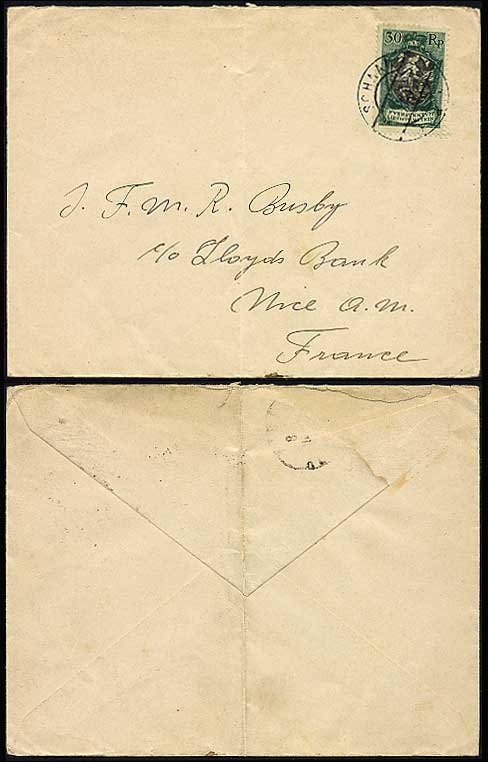 30 Rp
SCHAAN
J. F. M. R. Busby
c/o Lloyds Bank
Nice A.M.
France